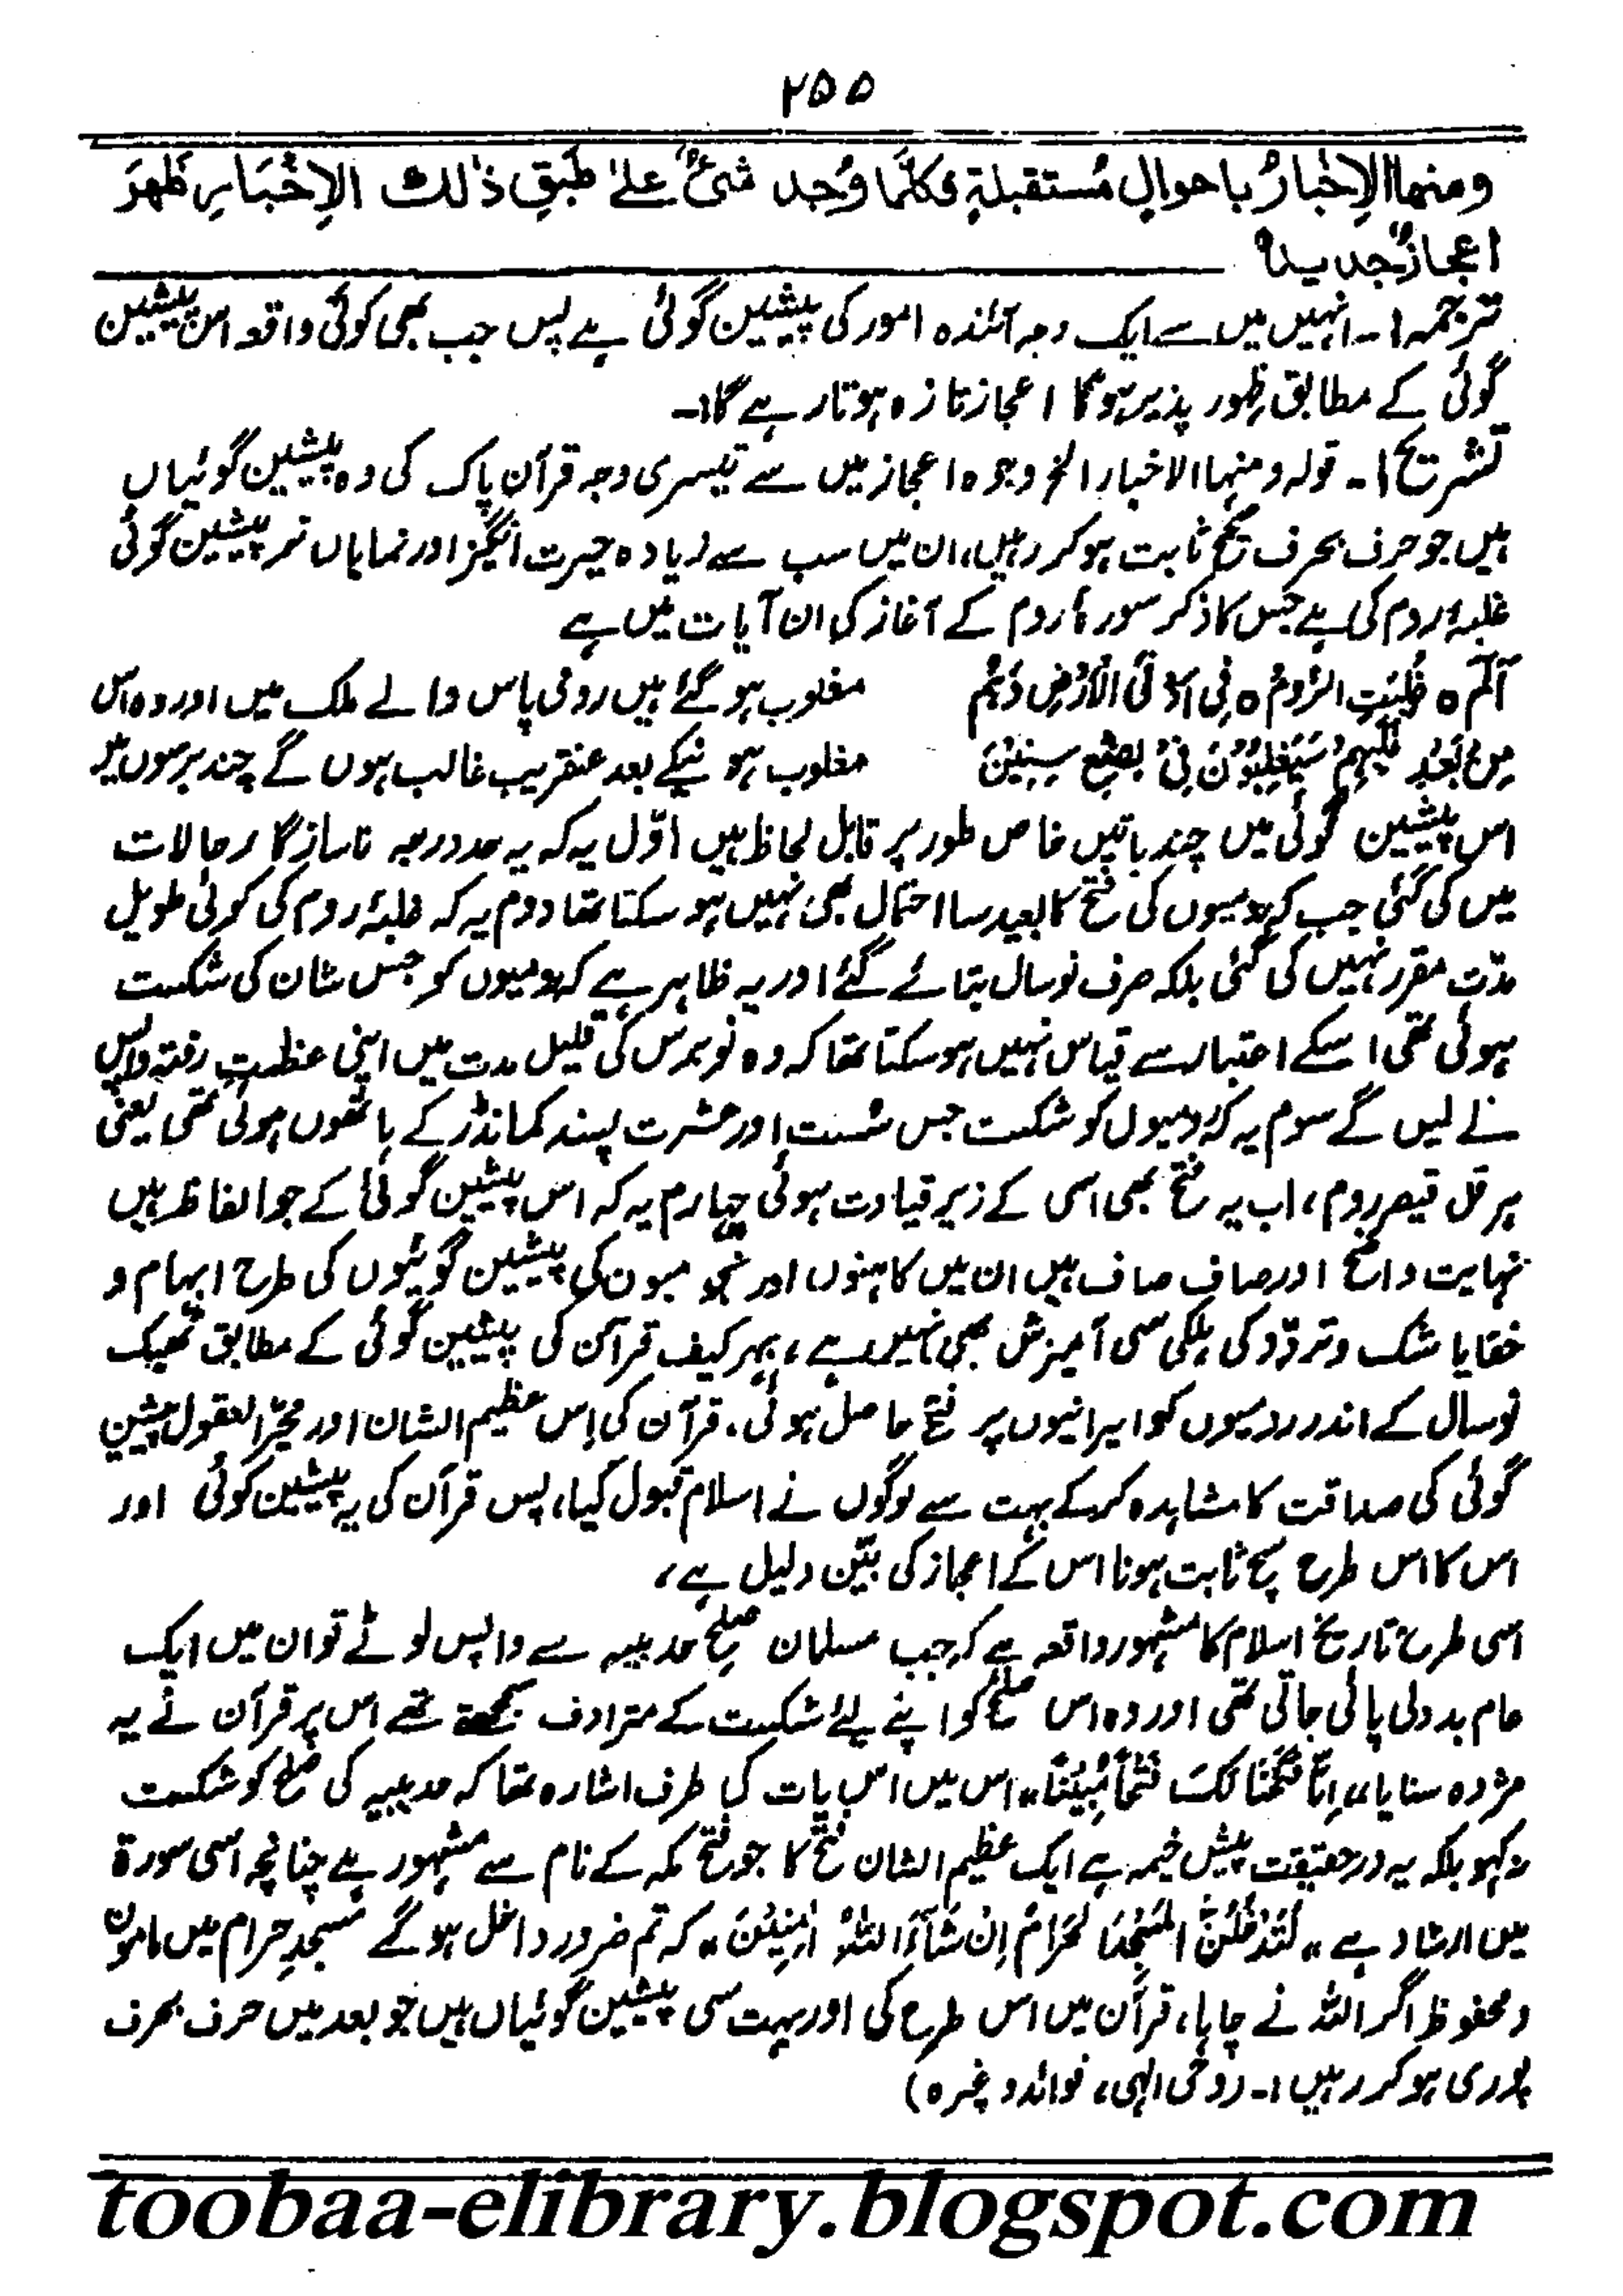 ۲۵۵
ومنها الاِخبارُ باحوالٍ مُستقبلةٍ فکلّما وُجد شیءٌ علیٰ طَبَقِ ذٰلک الاِخْبَارِ ظَهرَ
اعجازٌ جدیدٌ
ترجمہ:۔ انہیں میں سے ایک وجہ آئندہ امور کی پیشین گوئی ہے پس جب بھی کوئی واقعہ اس پیشین
گوئی کے مطابق ظہور پذیر ہوگا اعجاز تازہ ہوتا رہے گا:۔
تشریح:۔ قولہ ومنہا الاخبار الخ وجوہ اعجاز میں سے تیسری وجہ قرآن پاک کی وہ پیشین گوئیاں
ہیں جو حرف بحرف صحیح ثابت ہو کر رہیں، ان میں سب سے زیادہ حیرت انگیز اور نمایاں تر پیشین گوئی
غلبۂ روم کی ہے جس کا ذکر سورۂ روم کے آغاز کی ان آیات میں ہے
الٓمّٓ ہ غُلِبَتِ الرُّومُ ہ فِی اَدْنَی الْاَرْضِ وَهُمْ مغلوب ہو گئے ہیں رومی پاس والے ملک میں اور وہ اس
مِنْ بَعْدِ غَلَبِهِمْ سَیَغْلِبُوْنَ فِیْ بِضْعِ سِنِیْنَ مغلوب ہو نیکے بعد عنقریب غالب ہوں گے چند برسوں میں
اس پیشین گوئی میں چند باتیں خاص طور پر قابل لحاظ ہیں اوّل یہ کہ یہ حد درجہ ناسازگار حالات
میں کی گئی جب کہ رومیوں کی فتح کا بعید سا احتمال بھی نہیں ہو سکتا تھا دوم یہ کہ غلبۂ روم کی کوئی طویل
مدّت مقرر نہیں کی گئی بلکہ صرف نو سال بتائے گئے اور یہ ظاہر ہے کہ رومیوں کو جس شان کی شکست
ہوئی تھی اسکے اعتبار سے قیاس نہیں ہو سکتا تھا کہ وہ نو برس کی قلیل مدت میں اپنی عظمتِ رفتہ واپس
لے لیں گے سوم یہ کہ رومیوں کو شکست جس سُست اور عشرت پسند کمانڈر کے ہاتھوں ہوئی تھی یعنی
ہرقل قیصر روم، اب یہ فتح بھی اسی کے زیر قیادت ہوئی چہارم یہ کہ اس پیشین گوئی کے جو الفاظ ہیں
نہایت واضح اور صاف صاف ہیں ان میں کاہنوں اور نجومیوں کی پیشین گوئیوں کی طرح ابہام و
خفا یا شک و تردّد کی ہلکی سی آمیزش بھی نہیں ہے، بہر کیف قرآن کی پیشین گوئی کے مطابق ٹھیک
نو سال کے اندر رومیوں کو ایرانیوں پر فتح حاصل ہوئی. قرآن کی اِس عظیم الشان اور محیّر العقول پیشین
گوئی کی صداقت کا مشاہدہ کرکے بہت سے لوگوں نے اسلام قبول کیا، پس قرآن کی یہ پیشین گوئی اور
اس کا اس طرح سچ ثابت ہونا اس کے اعجاز کی بیّن دلیل ہے،
اسی طرح تاریخ اسلام کا مشہور واقعہ ہے کہ جب مسلمان صلحِ حدیبیہ سے واپس لوٹے تو ان میں ایک
عام بددلی پائی جاتی تھی اور وہ اس صلح کو اپنے لئے شکست کے مترادف سمجھتے تھے اس پر قرآن نے یہ
مژدہ سنایا "اِنَّا فَتَحْنَا لَکَ فَتْحًا مُّبِیْنًا" اس میں اس بات کی طرف اشارہ تھا کہ حدیبیہ کی صلح کو شکست
نہ کہو بلکہ یہ درحقیقت پیش خیمہ ہے ایک عظیم الشان فتح کا جو فتح مکہ کے نام سے مشہور ہے چنانچہ اسی سورۃ
میں ارشاد ہے "لَتَدْخُلُنَّ الْمَسْجِدَ الْحَرَامَ اِنْ شَآءَ اللّٰهُ اٰمِنِیْنَ" کہ تم ضرور داخل ہوگے مسجدِ حرام میں مامون
و محفوظ اگر اللہ نے چاہا، قرآن میں اس طرح کی اور بہت سی پیشین گوئیاں ہیں جو بعد میں حرف بحرف
پوری ہو کر رہیں:۔ (وحی الٰہی، فوائد وغیرہ)
toobaa-elibrary.blogspot.com